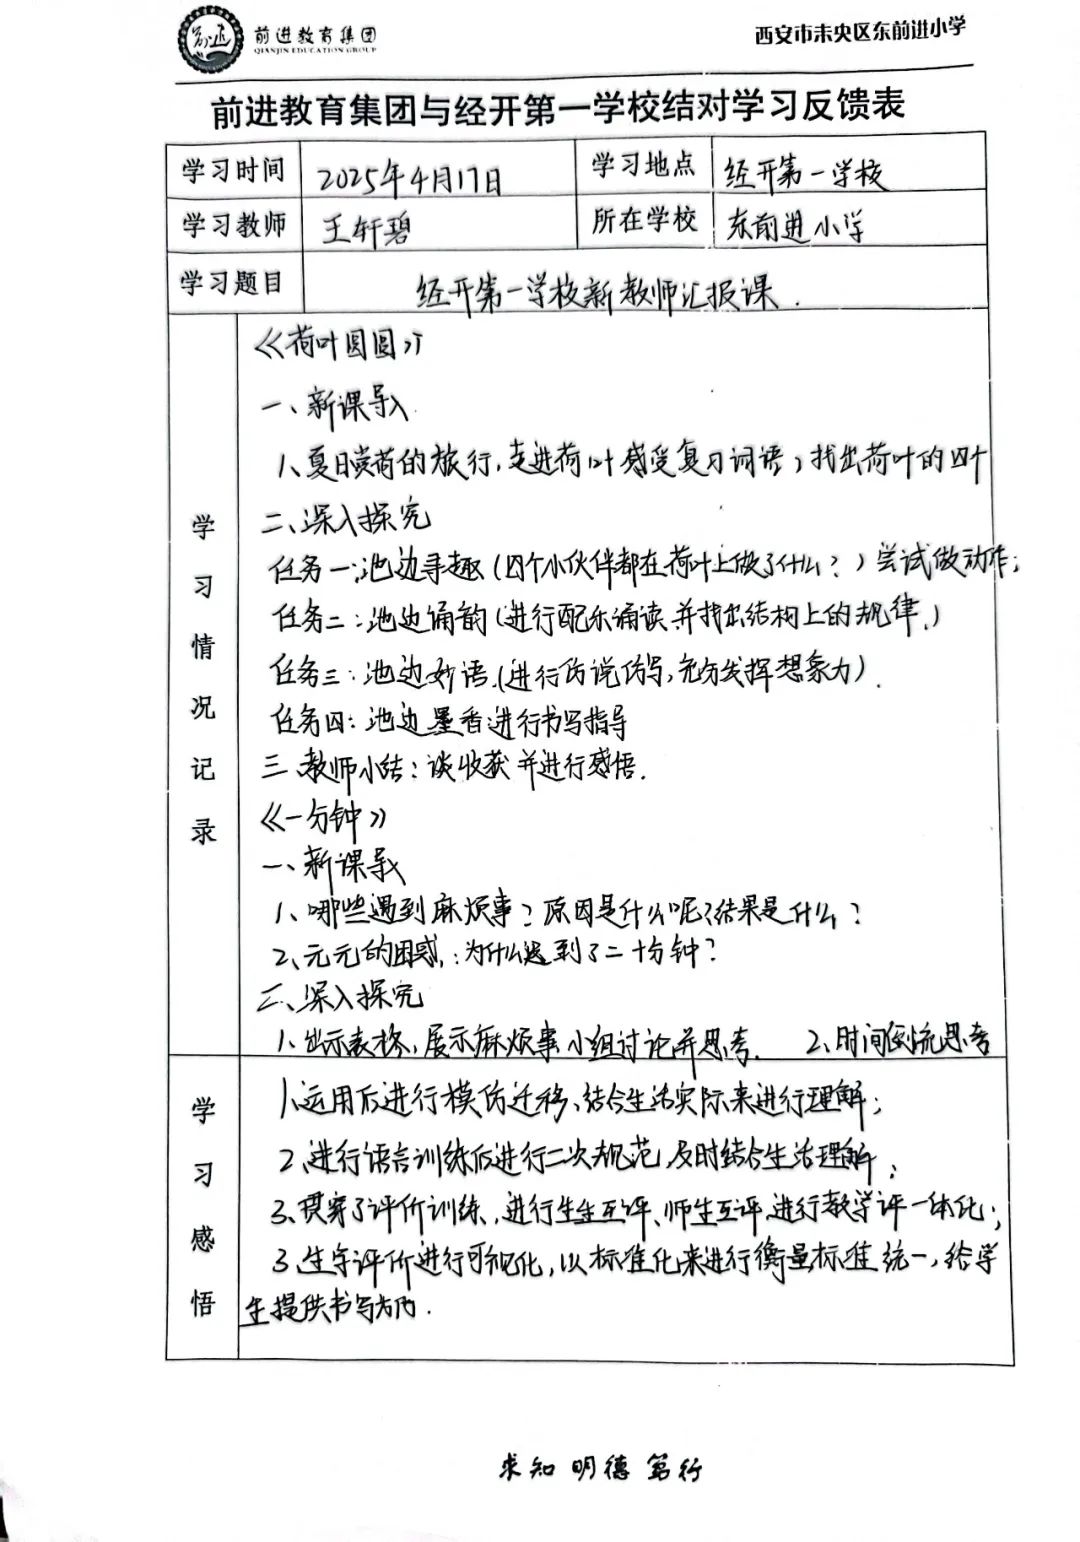 前进教育集团
QIANJIN EDUCATION GROUP
西安市未央区东前进小学
前进教育集团与经开第一学校结对学习反馈表
学习时间 2025年4月17日 学习地点 经开第一学校
学习教师 王轩碧 所在学校 东前进小学
学习题目 经开第一学校新教师汇报课.
学习情况记录
《荷叶圆圆》
一、新课导入
1、夏日赏荷的旅行,走进荷叶感受复习词语,找出荷叶的四个
二、深入探究
任务一:池边寻趣(四个小伙伴都在荷叶上做了什么?)尝试做动作;
任务二:池边诵韵(进行配乐诵读并找出结构上的规律.)
任务三:池边妙语.(进行仿说仿写,充分发挥想象力).
任务四:池边墨香进行书写指导
三、教师小结:谈收获并进行感悟.
《一分钟》
一、新课导入
1、哪些遇到麻烦事?原因是什么呢?结果是什么?
2、元元的困惑:为什么迟到了二十分钟?
二、深入探究
1、出示表格,展示麻烦事小组讨论并思考. 2、时间倒流思考
学习感悟
1、运用后进行模仿迁移、结合生活实际来进行理解;
2、进行语言训练后进行二次规范,及时结合生活理解;
3、贯穿了评价训练,进行生生互评、师生互评,进行教学评一体化;
3、生字评价进行可视化,以标准化来进行衡量标准统一,给学
生提供书写方向.
求知 明德 笃行